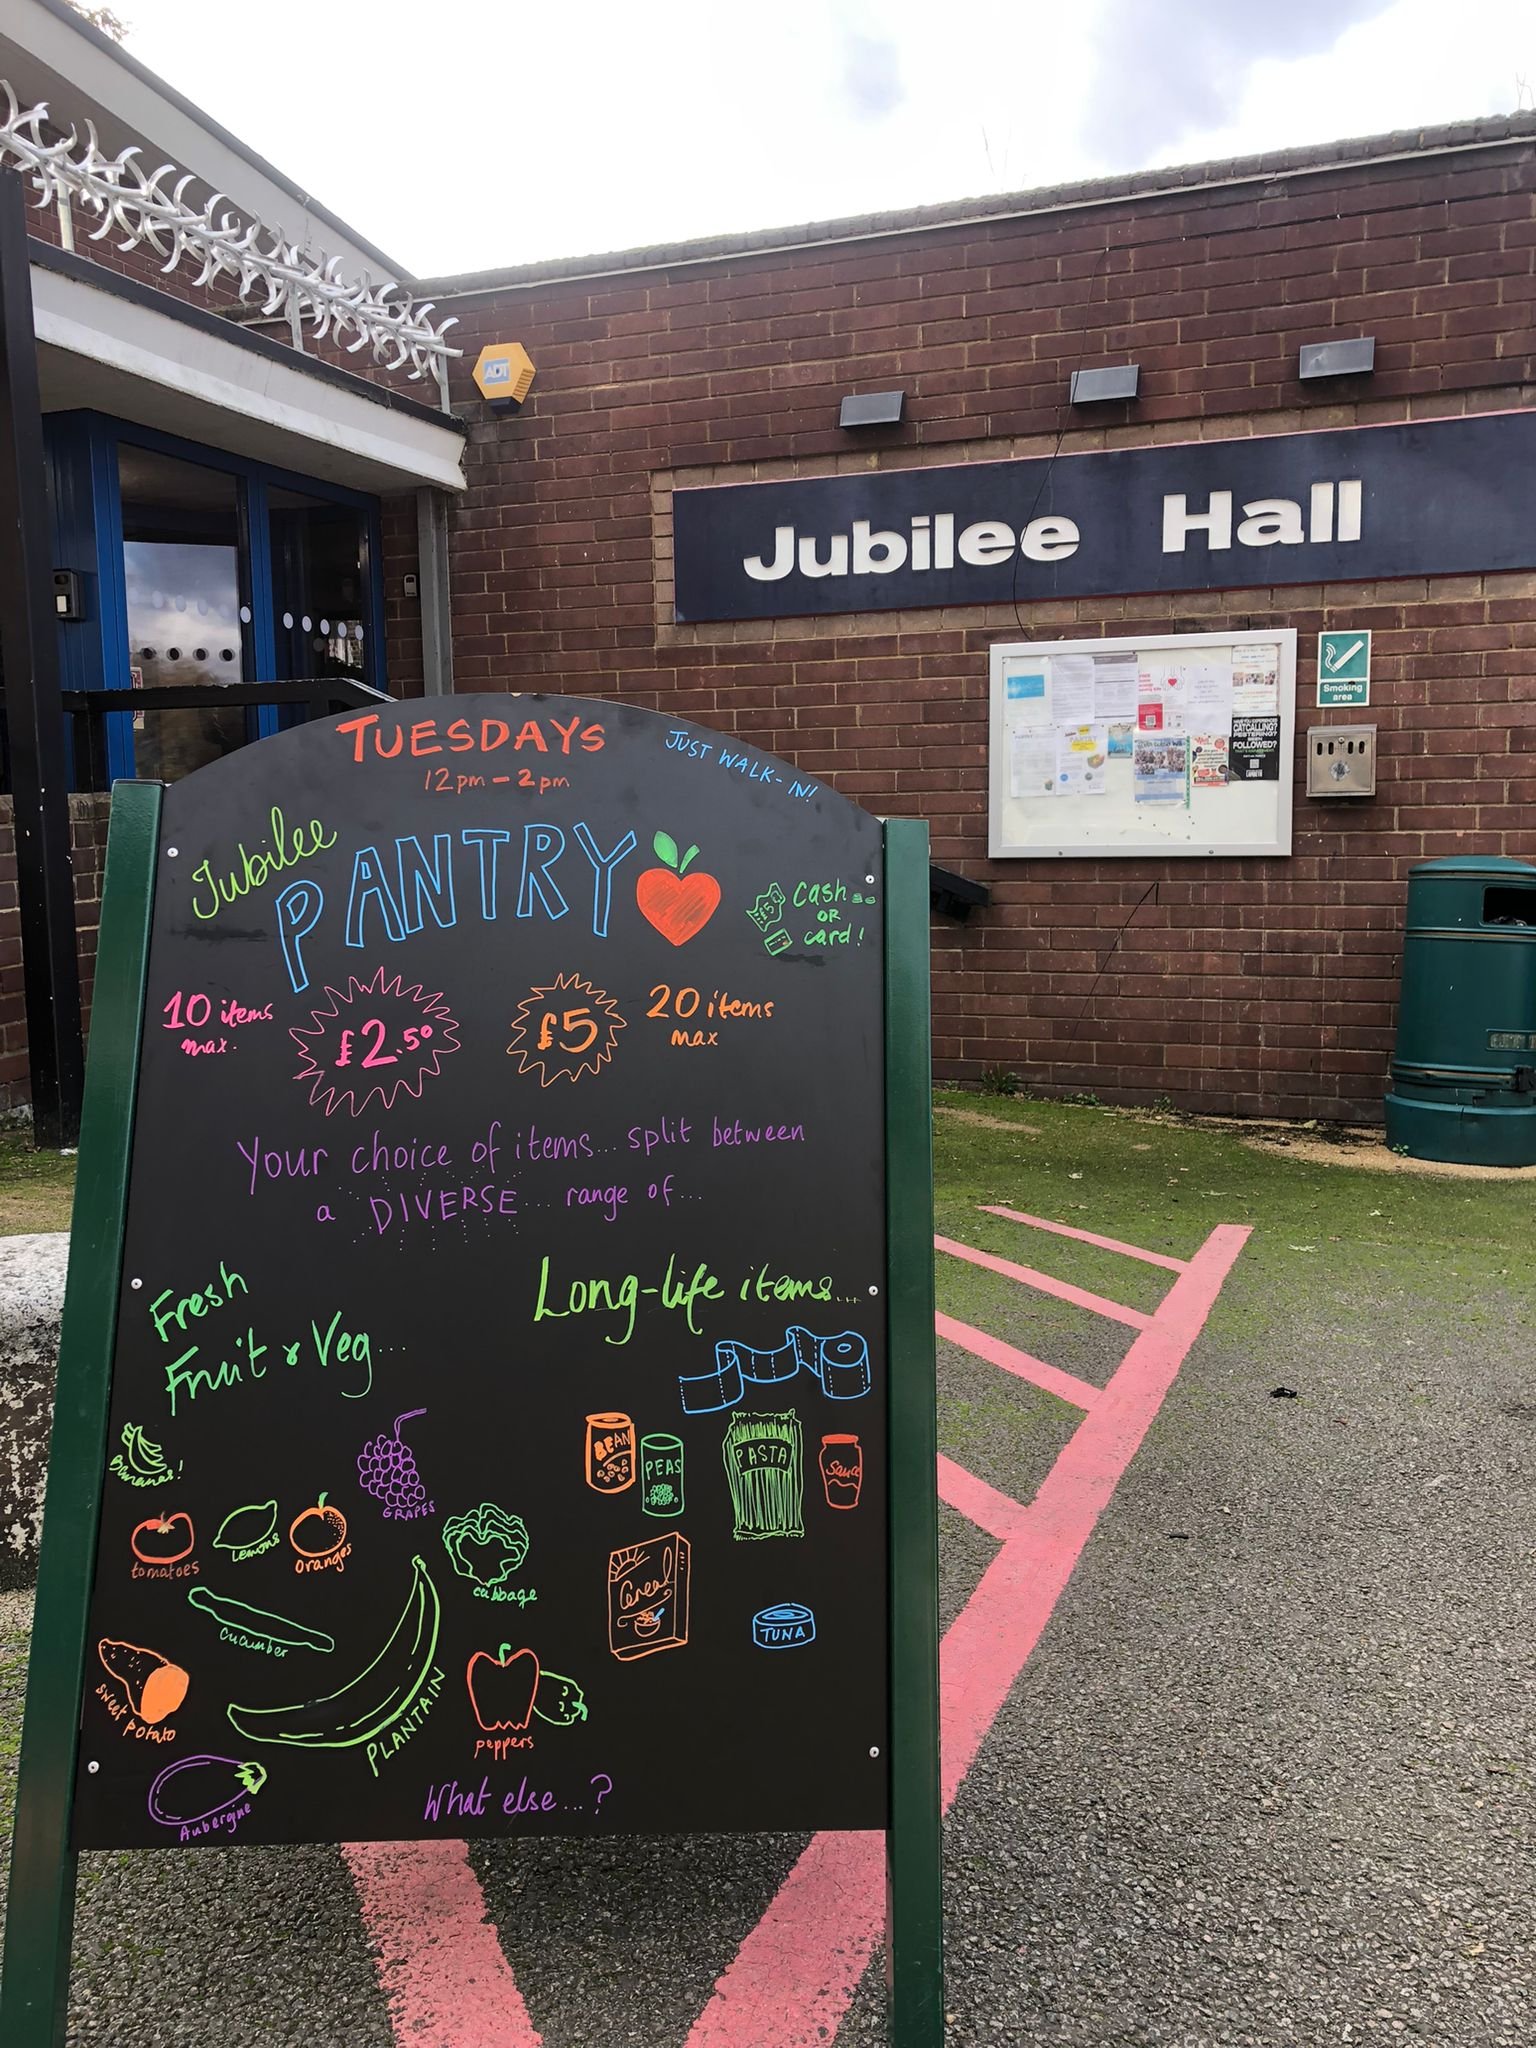 ADT
Jubilee Hall
Smoking
area
CATCALLING?
FOLLOWED?
TUESDAYS
12pm - 2pm
JUST WALK-IN!
Jubilee
PANTRY
£5
cash
OR
card!
10 items
max.
£2.50
£5
20 items
max
Your choice of items... split between
a DIVERSE... range of...
Fresh
Fruit & Veg...
Long-life items...
Bananas!
GRAPES
tomatoes
Lemons
oranges
cabbage
cucumber
sweet potato
PLANTAIN
peppers
Aubergine
BEAN
PEAS
PASTA
Sauce
Cereal
TUNA
What else...?